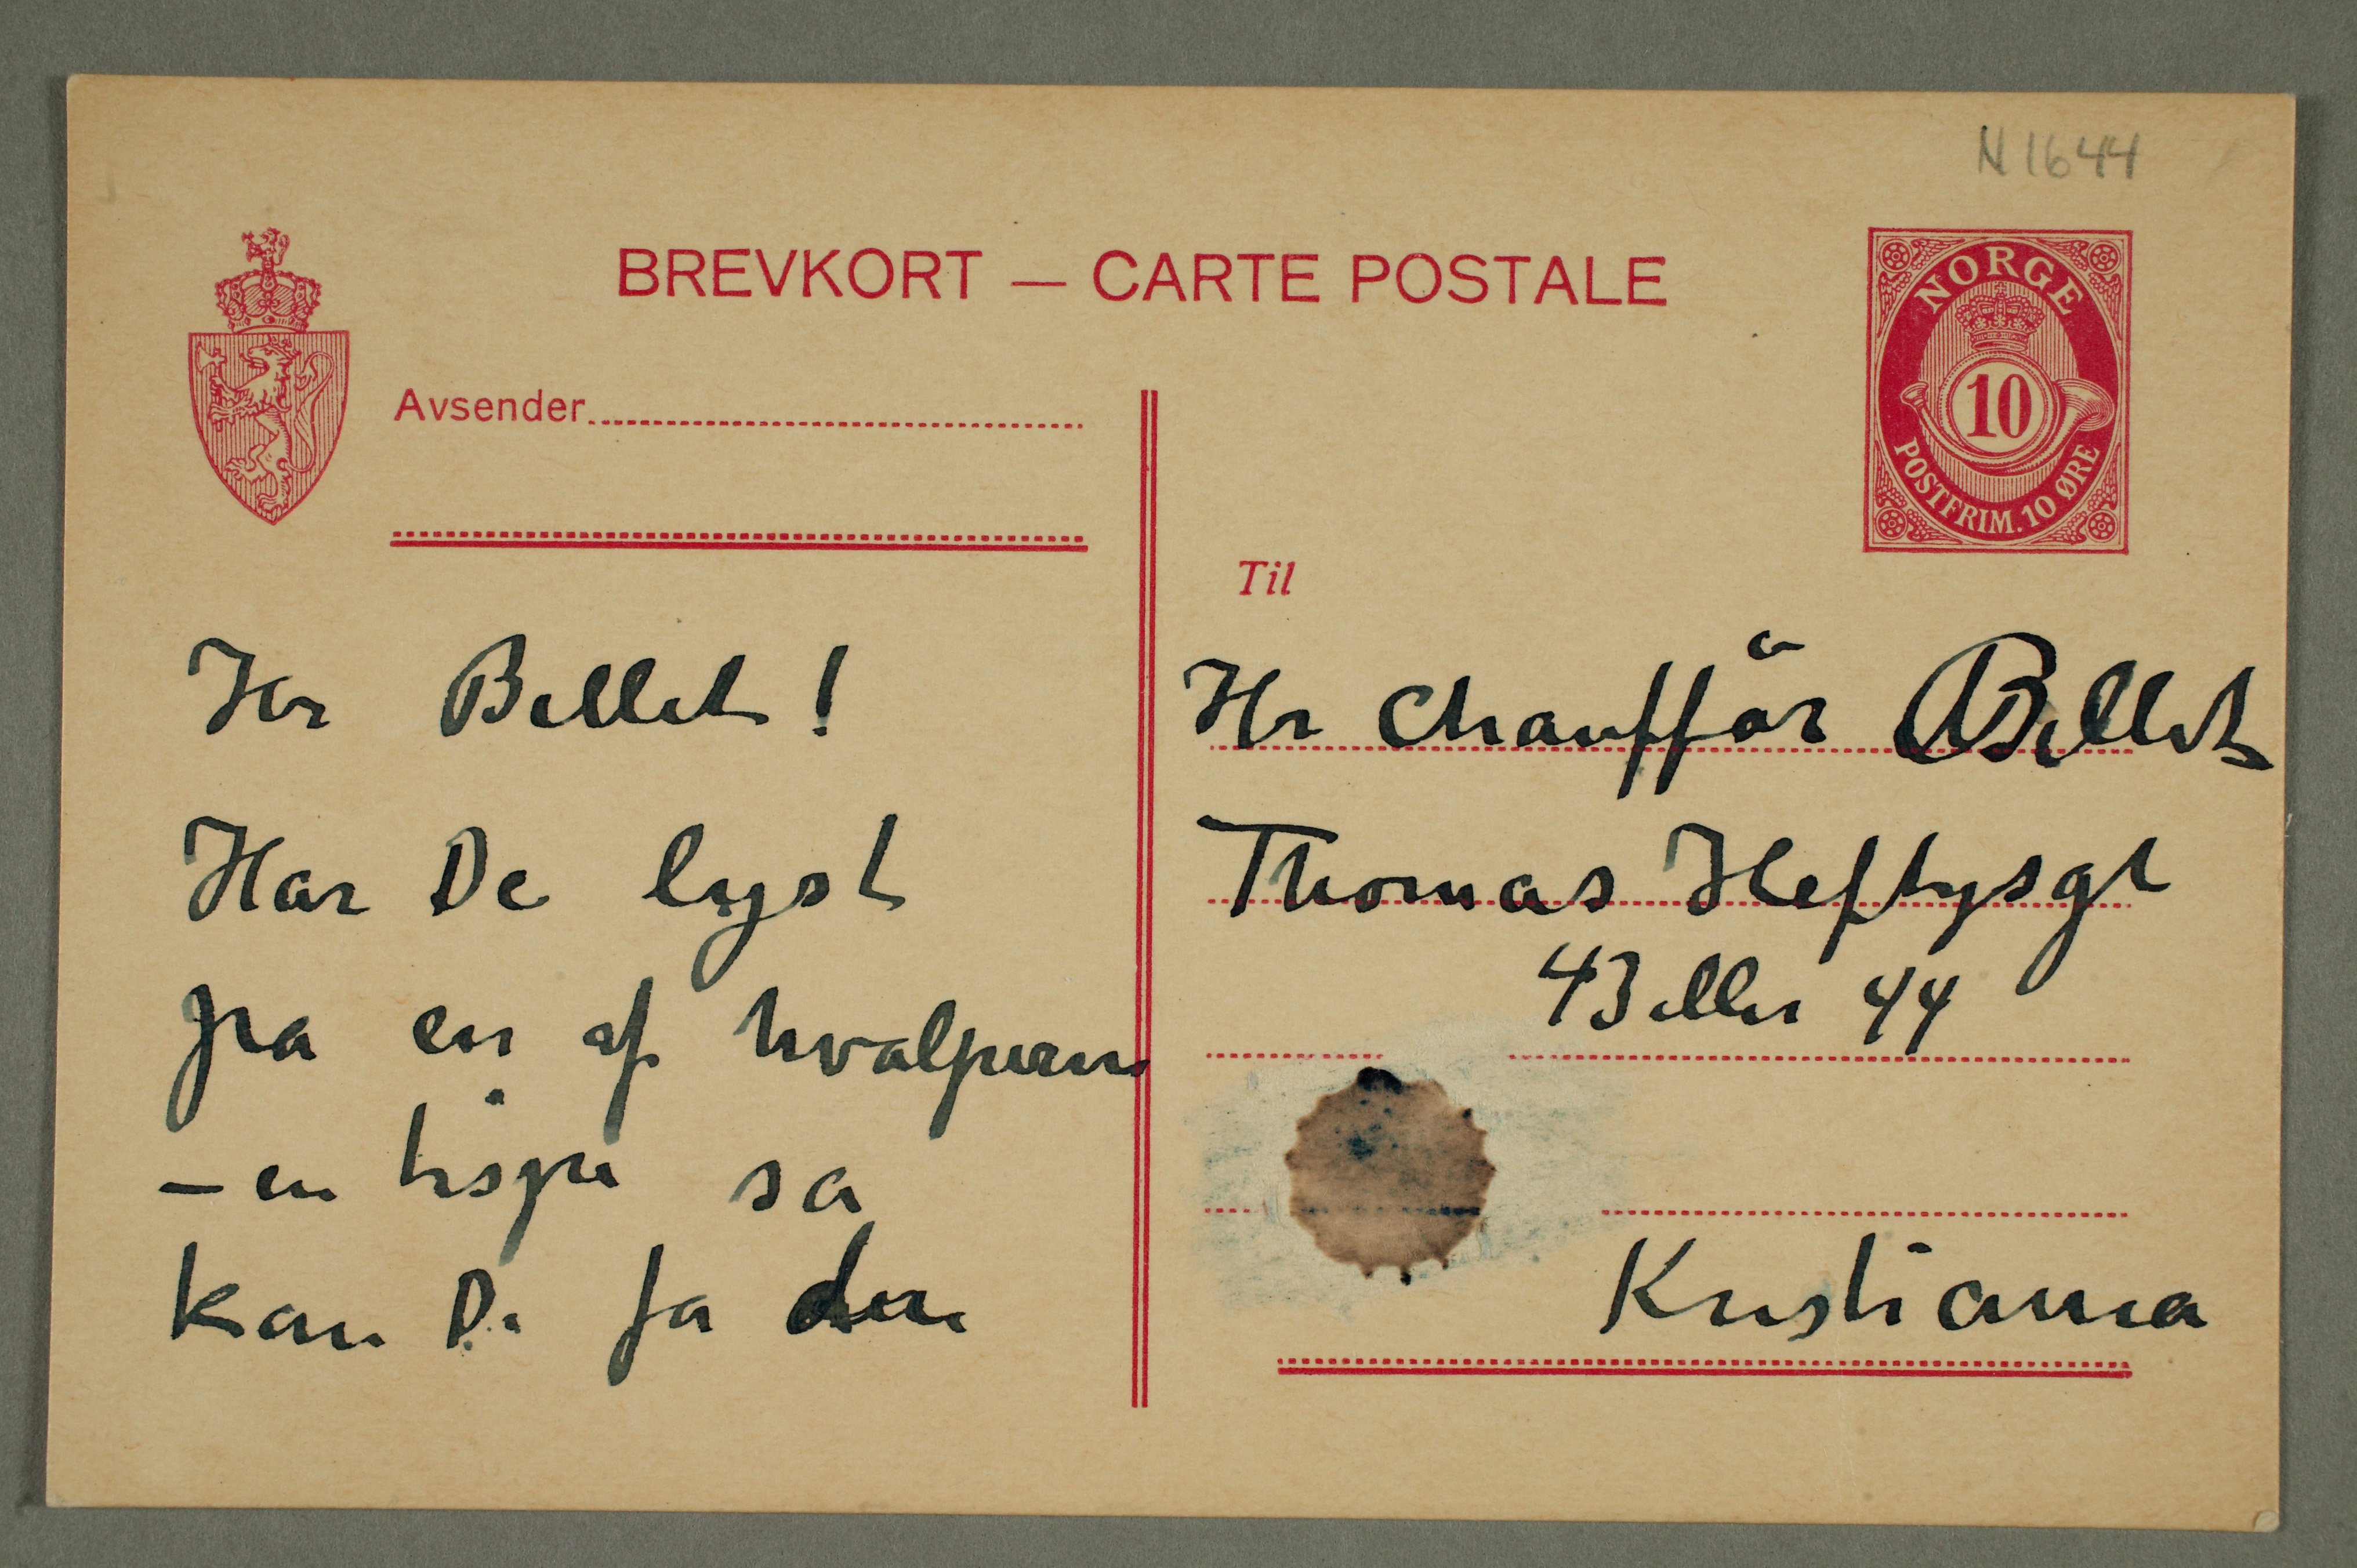 N 1644
BREVKORT — CARTE POSTALE
NORGE
10
POSTFRIM. 10 ØRE
Avsender
Hr Billet!
Har De lyst
pa en af hvalperne
– en tispe sa
kan De fa den
Til
Hr Chaufför Billet
Thomas Heftysgt
43 eller 44
Kristiania